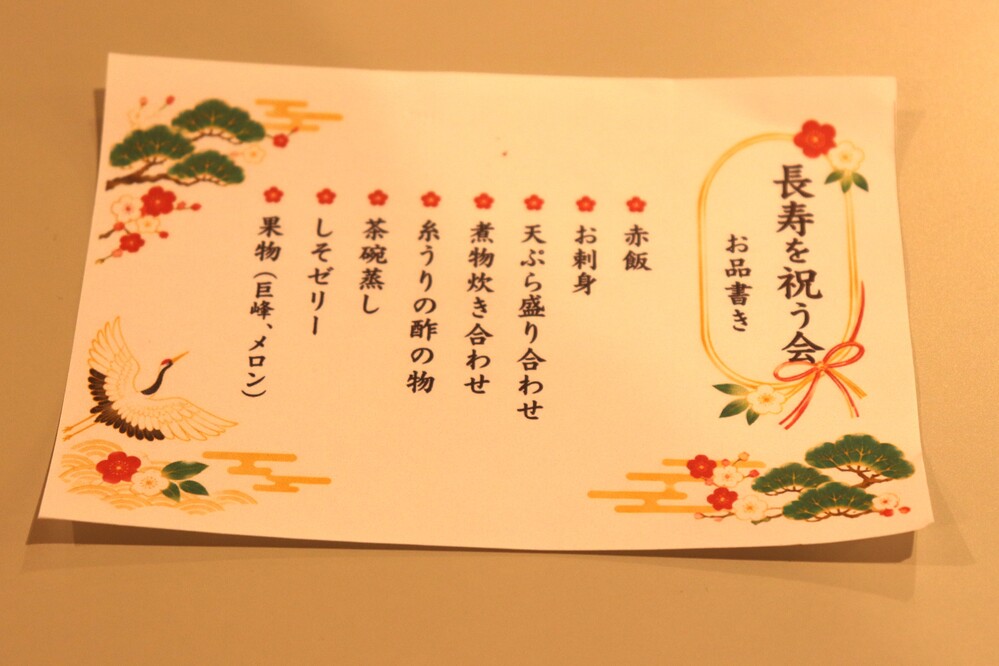 長寿を祝う会
お品書き
赤飯
お刺身
天ぷら盛り合わせ
煮物炊き合わせ
糸うりの酢の物
茶碗蒸し
しそゼリー
果物（巨峰、メロン）